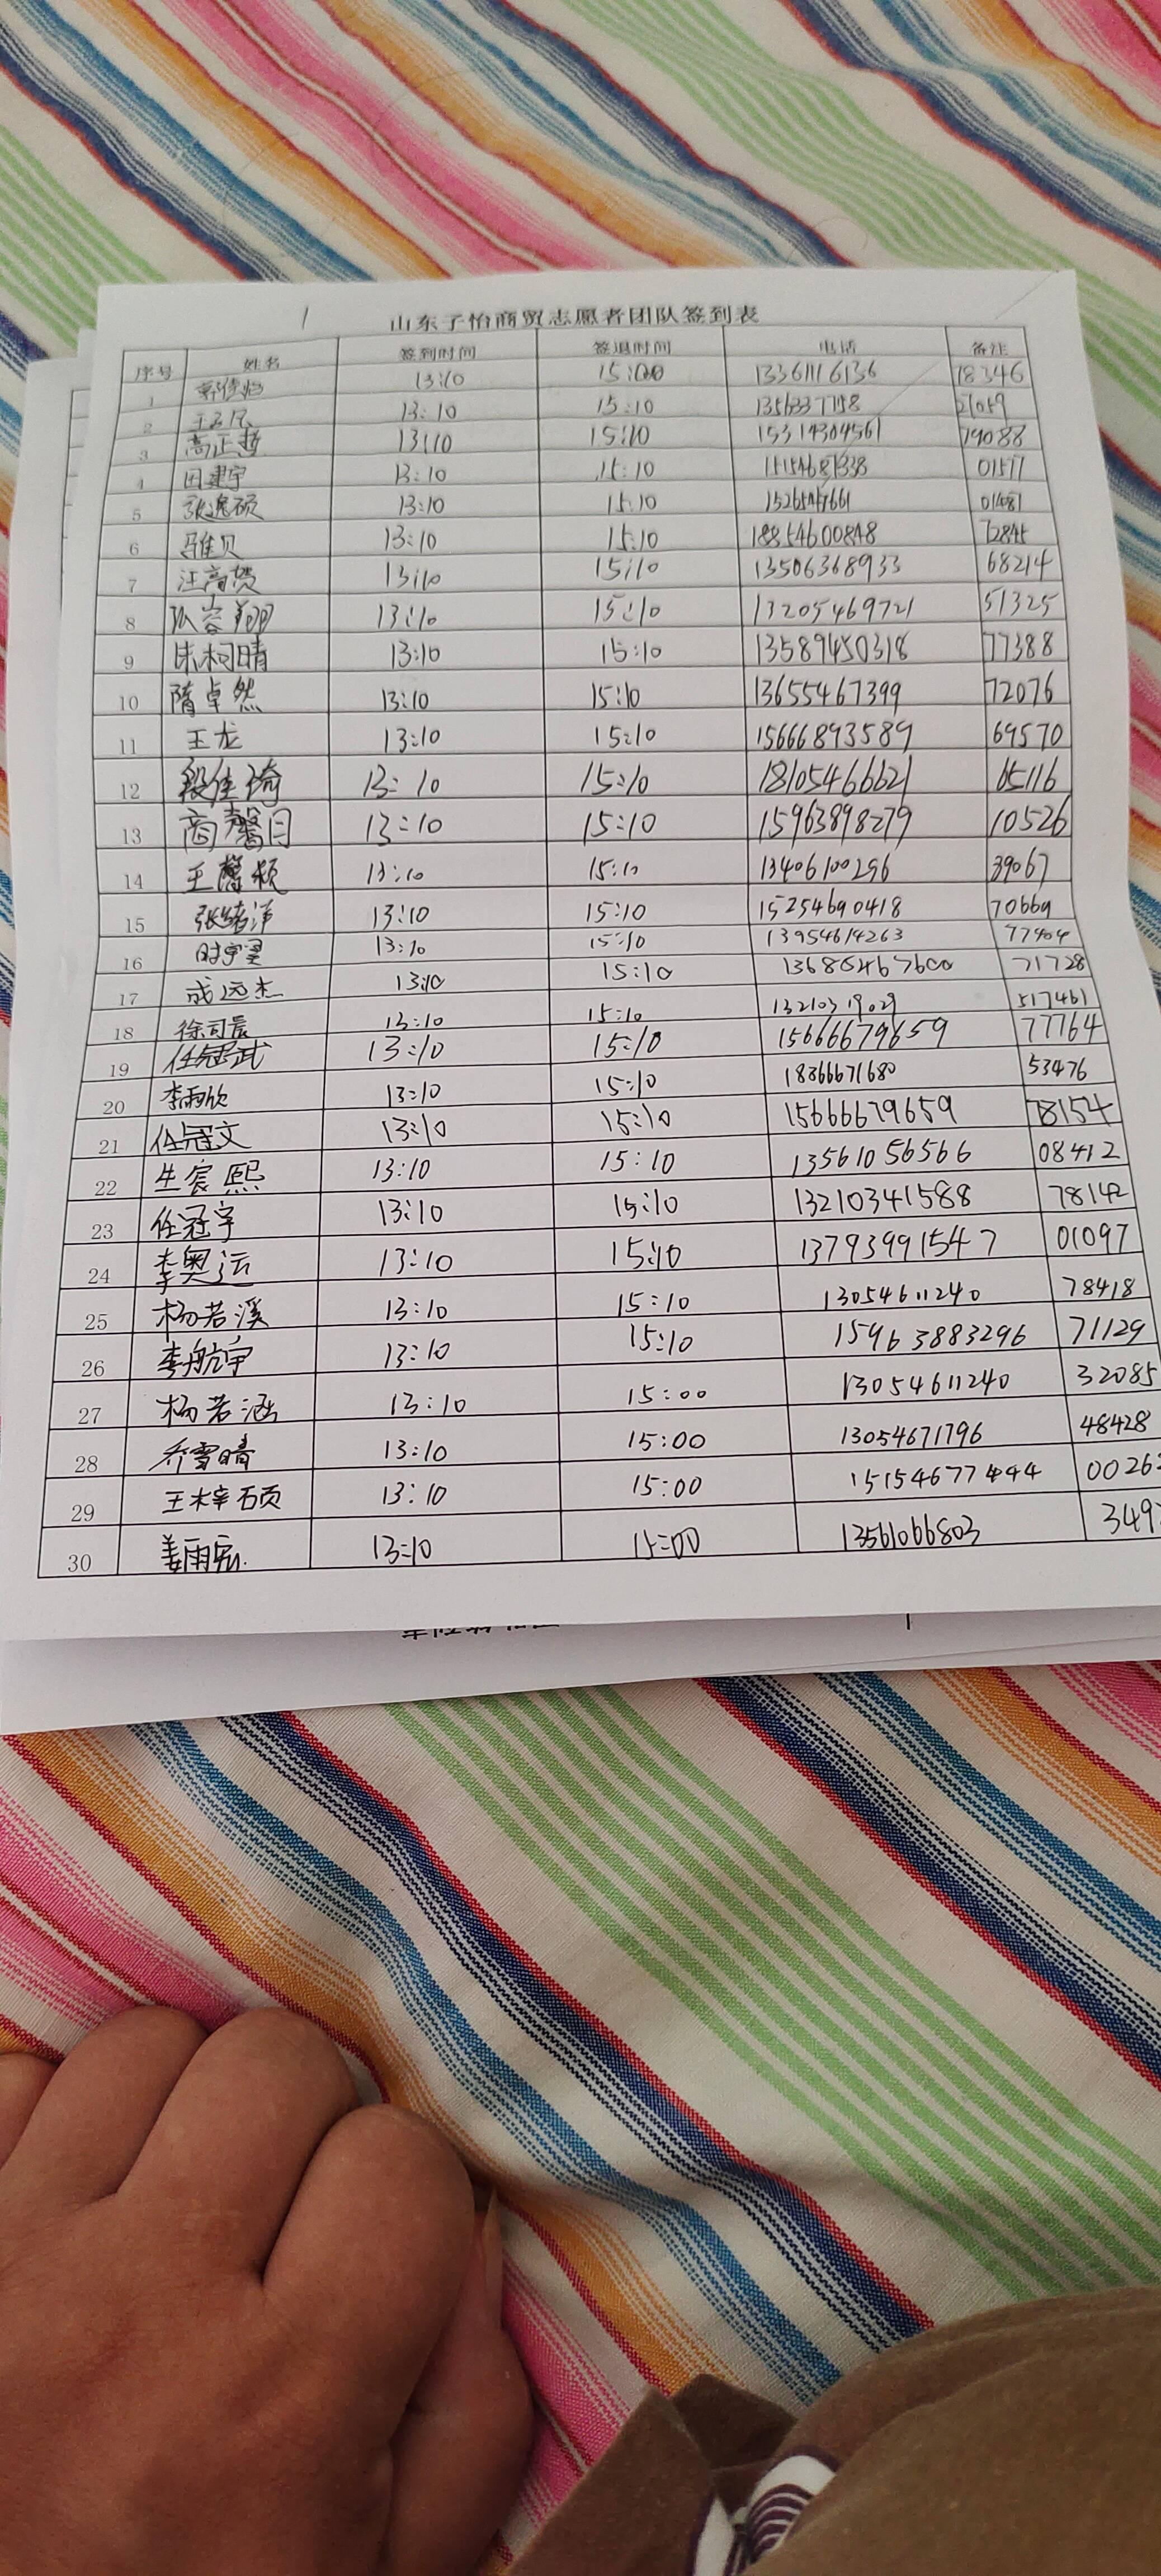 山东子怡商贸志愿者团队签到表
序号 姓名 签到时间 签退时间 电话 备注
1 13:10 13361116136 18346
2 13:10 15:10
3 高正哲 13:10 15:10 15314304561 79088
4 田建宇 13:10 15:10 01577
5 张逸硕 13:10 15:10
6 13:10 15:10 18854600848
7 汪高贺 13:10 15:10 13506368933 68214
8 13:10 15:10 13205469721 51325
9 朱柯晴 13:10 15:10 13589450318 77388
10 隋卓然 13:10 15:10 13655467399 72076
11 王龙 13:10 15:10 15666893589 69570
12 段佳琦 13:10 15:10 18105466621 65116
13 商馨月 13:10 15:10 15963898279 10526
14 13:10 15:10 13406100296 39067
15 张绪洋 13:10 15:10 15254690418 70669
16 13:10 15:10 13954614263 77404
17 成远杰 13:10 15:10 13686467600 71728
18 徐司晨 13:10 15:10 13210319029 517461
19 任冠武 13:10 15:10 15666679659 77764
20 李雨欣 13:10 15:10 18366671680 53476
21 任冠文 13:10 15:10 15666679659 78154
22 生宸熙 13:10 15:10 13561056566 08412
23 任冠宇 13:10 15:10 13210341588 78142
24 李奥运 13:10 15:10 13793991547 01097
25 杨若溪 13:10 15:10 13054611240 78418
26 李航宇 13:10 15:10 15963883296 71129
27 杨若涵 13:10 15:00 13054611240 32085
28 乔雪晴 13:10 15:00 13054671796 48428
29 王梓硕 13:10 15:00 15154677444 0026
30 姜雨宏 13:10 15:00 13561066803 349